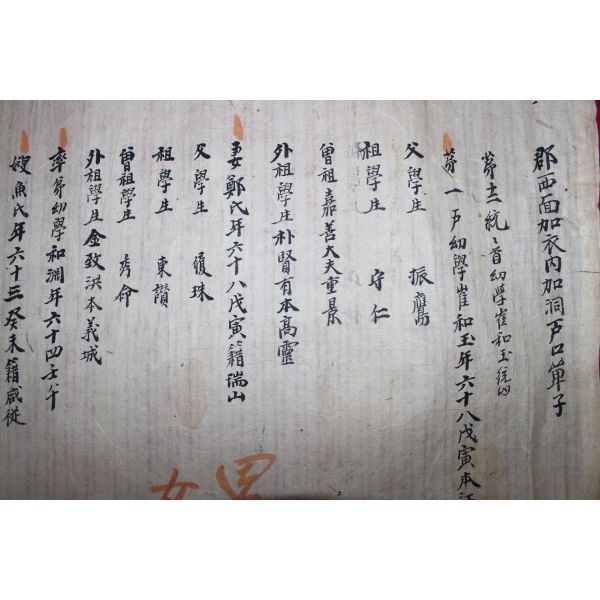 郡西面加衣內加洞戶口單子
第十二統統首幼學崔和玉統內
第一戶幼學崔和玉年六十八戊寅本江
父學生 振鷹
祖學生 守仁
曾祖嘉善大夫重景
外祖學生朴賢有本高靈
妻鄭氏年六十八戊寅籍瑞山
父學生 復珠
祖學生 東讚
曾祖學生 秀命
外祖學生金致洪本義城
率弟幼學和淵年六十四壬午
嫂魚氏年六十三癸未籍咸從
男
女